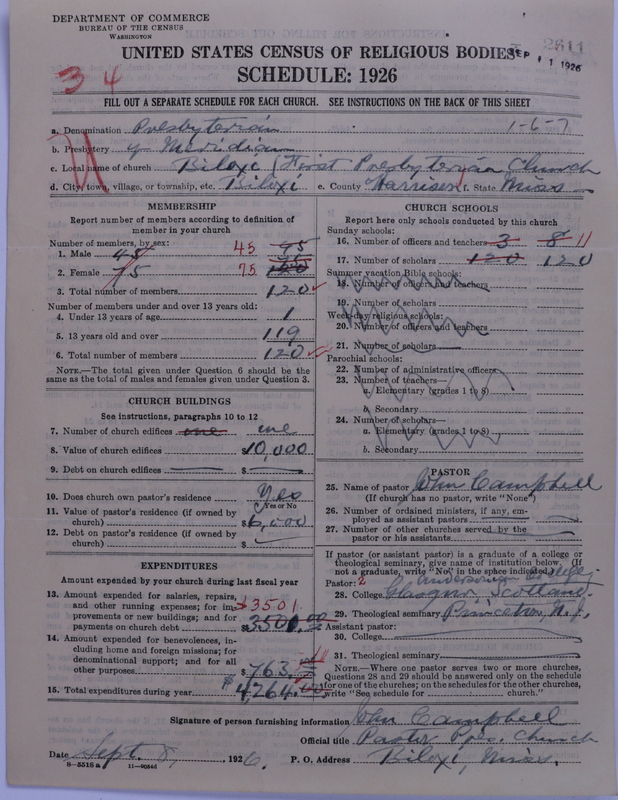 DEPARTMENT OF COMMERCE
BUREAU OF THE CENSUS
WASHINGTON
UNITED STATES CENSUS OF RELIGIOUS BODIES
SEP 11 1926
2611
SCHEDULE: 1926
3 4
FILL OUT A SEPARATE SCHEDULE FOR EACH CHURCH. SEE INSTRUCTIONS ON THE BACK OF THIS SHEET
a. Denomination Presbyterian 1-6-7
b. Presbytery of Meridian
c. Local name of church Biloxi (First Presbyterian Church
d. City, town, village, or township, etc. Biloxi e. County Harrison f. State Miss
MEMBERSHIP
Report number of members according to definition of
member in your church
Number of members, by sex:
1. Male 45 45
2. Female 75 75 120
3. Total number of members 120
Number of members under and over 13 years old:
4. Under 13 years of age 1
5. 13 years old and over 119
6. Total number of members 120
NOTE.—The total given under Question 6 should be the
same as the total of males and females given under Question 3.
CHURCH BUILDINGS
See instructions, paragraphs 10 to 12
7. Number of church edifices one one
8. Value of church edifices $10,000
9. Debt on church edifices $
10. Does church own pastor's residence Yes
Yes or No
11. Value of pastor's residence (if owned by
church) $6,000
12. Debt on pastor's residence (if owned by
church) $
EXPENDITURES
Amount expended by your church during last fiscal year
13. Amount expended for salaries, repairs,
and other running expenses; for im-
provements or new buildings; and for
payments on church debt $3501
14. Amount expended for benevolences, in-
cluding home and foreign missions; for
denominational support; and for all
other purposes $763
15. Total expenditures during year $4264
CHURCH SCHOOLS
Report here only schools conducted by this church
Sunday schools:
16. Number of officers and teachers 3 8 11
17. Number of scholars 120 120
Summer vacation Bible schools:
18. Number of officers and teachers
19. Number of scholars
Week-day religious schools:
20. Number of officers and teachers
21. Number of scholars
Parochial schools:
22. Number of administrative officers
23. Number of teachers—
a. Elementary (grades 1 to 8)
b. Secondary
24. Number of scholars—
a. Elementary (grades 1 to 8)
b. Secondary
PASTOR
25. Name of pastor John Campbell
(If church has no pastor, write "None")
26. Number of ordained ministers, if any, em-
ployed as assistant pastors
27. Number of other churches served by the
pastor or his assistants
If pastor (or assistant pastor) is a graduate of a college or
theological seminary, give name of institution below. (If
not a graduate, write "No" in the space indicated.)
Pastor: 2 Andersonian College
28. College Glasgow Scotland
29. Theological seminary Princeton, N.J.
Assistant pastor:
30. College
31. Theological seminary
NOTE.—Where one pastor serves two or more churches,
Questions 28 and 29 should be answered only on the schedule
for one of the churches; on the schedules for the other churches,
write "See schedule for church."
Signature of person furnishing information John Campbell
Official title Pastor Pres. Church
Date Sept. 8, 1926. P. O. Address Biloxi, Miss.
8—5518 a